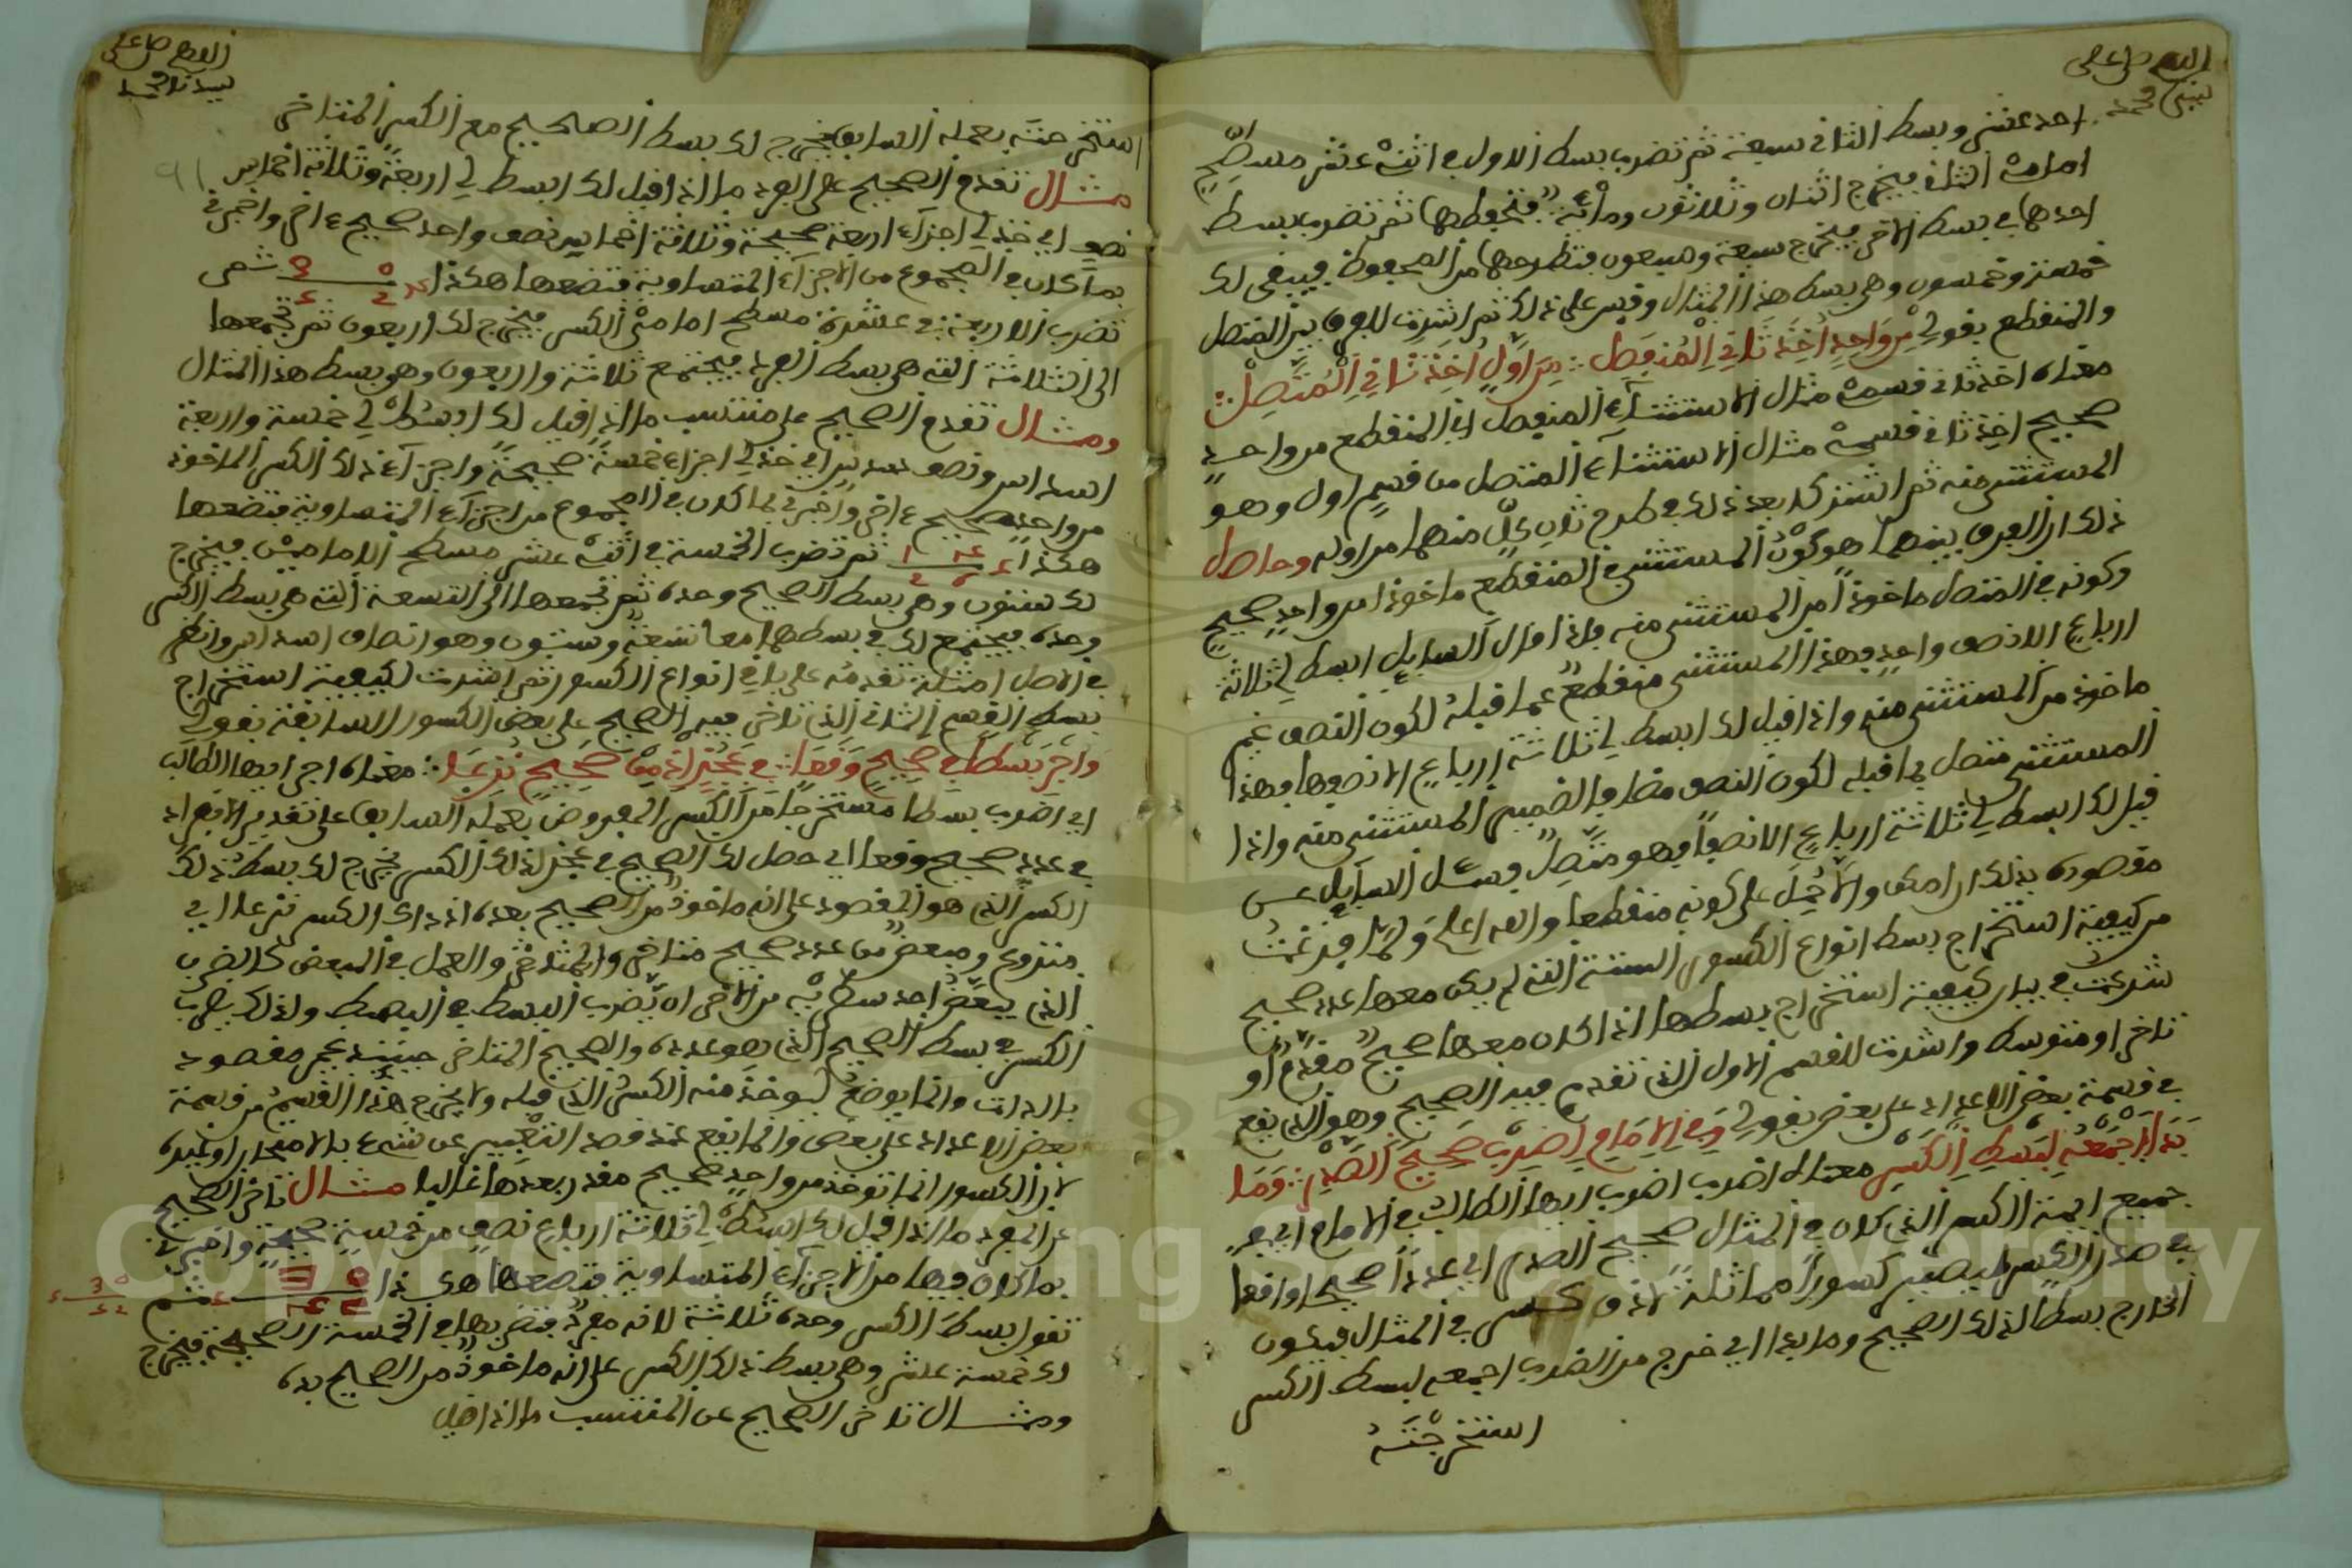 اللهم صل على
سيدنا محمد
احد عشر وبسط الثاني سبعة ثم تضرب بسط الاول في اثنى عشر مسطح
امامى الثاني فيخرج اثنان وثلاثون ومائة فتحفظها ثم تضرب بسط
احدهما في بسط الاخر فيخرج سبعة وسبعون فتطرحها من المحفوظ فيبقى لك
خمسة وخمسون وهي بسط هذا المثال وقس على ذلك ثم اشرت للفرق بين المتصل
والمنقطع بقولي من واحد اخذ ثاني المنفصل من اول اخذ ثاني المتصل
معناه اخذ ثاني قسمى مثال الاستثناء المنفصل اي المنقطع من واحد
صحيح اخذ ثاني قسمى مثال الاستثناء المتصل من قسم اول وهو
المستثنى منه ثم اشتركا بعد ذلك في طرح ثان كل منهما من اوله وحاصل
ذلك ان الفرق بينهما هو كون المستثنى في المنقطع ماخوذا من واحد صحيح
وكونه في المتصل ماخوذا من المستثنى منه فاذا قال السايل ابسط لي ثلاثة
ارباع الا نصف واحد فهذا المستثنى منقطع عما قبله لكون النصف غير
ماخوذ من المستثنى منه واذا قيل لك ابسط لي ثلاثة ارباع الا نصفها فهذا
المستثنى متصل بما قبله لكون النصف مضافا لضمير المستثنى منه واذا
قيل لك ابسط لي ثلاثة ارباع الا نصفا فهو متصل وسئل السايل عن
مقصوده بذلك ان امكن والا حمل على كونه منقطعا والله اعلم ولما فرغت
من كيفية استخراج بسط انواع الكسور الستة التي لم يكن معها عدد صحيح
شرعت في بيان كيفية استخراج بسطها اذا كان معها صحيح مقدم او
تاخر او متوسط واشرت للقسم الاول الذي تقدم فيه الصحيح وهو الذي يقع
في قسمة بعض الاعداد على بعض بقولي وفي الامام اضرب صحيح الصدر وما
بدا اجمعه لبسط الكسر معناه اضرب اضرب ايها الطالب في الامام اي في
جميع ايمة الكسر الذي كان في المثال صحيح الصدر اي عددا صحيحا واقعا
في صدر الكسر ليصير كسورا مماثلة لادق كسر في المثال فيكون
الخارج بسطا لذلك الصحيح وما بدا اي خرج من الضرب اجمعه لبسط الكسر
استخرجته
اللهم صل على
سيدنا محمد
استخرجته بعمله السابق يخرج لك بسط الصحيح مع الكسر المتاخر
مثال تقدم الصحيح على المفرد ما اذا قيل لك ابسط لي اربعة وثلاثة اخماس
نصف اي خذ لي اجزاء اربعة صحيحة وثلاثة اخماس نصف واحد صحيح اخر واخبرني
بما كان في المجموع من الاجزاء المتساوية فتضعها هكذا ثم
تضرب الاربعة في عشرة مسطح امامى الكسر فيخرج لك اربعون ثم تجمعها
الى الثلاثة التي هي بسط المفرد فيجتمع ثلاثة واربعون وهو بسط هذا المثال
ومثال تقدم الصحيح على منتسب ما اذا قيل لك ابسط لي خمسة واربعة
اسداس ونصف سدس اي خذ لي اجزاء خمسة صحيحة واجزاء ذلك الكسر الماخوذ
من واحد صحيح اخر واخبرني بما كان في المجموع من اجزاء المتساوية فتضعها
هكذا ثم تضرب الخمسة في اثنى عشر مسطح الامامين فيخرج
لك ستون وهي بسط الصحيح وحده ثم تجمعها الى التسعة التي هي بسط الكسر
وحده فيجتمع لك في بسطهما معا تسعة وستون وهو انصاف اسداس وانظر
في الاصل امثلة تقدمه على باقي انواع الكسور ثم اشرت لكيفية استخراج
بسط القسم الثاني الذي تاخر فيه الصحيح على بعض الكسور السابقة بقولي
واجر بسطا في صحيح وقعا في عجز اذ من صحيح نزعا معناه اجر ايها الطالب
اي اضرب بسطا مستخرجا من الكسر المفروض بعمله السابق على تقدير الانفراد
في عدد صحيح وقعا اي حصل لك الصحيح في عجز لذلك الكسر يخرج لك بسط ذلك
الكسر الذي هو المقصود على انه ماخوذ من الصحيح بعده اذ ذاك الكسر نزعا اي
منزوع ومبعض من عدد صحيح متاخر والمتاخر والعمل في المبعض كالضرب
الذي يبعض احد سطحيه من الاخر ان تضرب البسط في البسط ولذلك يضرب
الكسر في بسط الصحيح الذي هو عدده والصحيح المتاخر حينئذ غير مقصود
بالذات وانما يوضع ليوخذ منه الكسر الذي قبله ولا يخرج هذا القسم من قسمة
بعض الاعداد على بعض وانما يقع عند قصد التعبير عن شيء بالامتحان او غيره
لان الكسور انما توخذ من واحد صحيح مقدر بعدها غالبا مثال تاخر الصحيح
عن المفرد ما اذا قيل لك ابسط لي ثلاثة ارباع نصف من خمسة صحيحة واخبرني
بما كان فيها من الاجزاء المتساوية فتضعها هكذا ثم
تقول بسط الكسر وحده ثلاثة لانه مفرد فتضربها في الخمسة الصحيحة فيخرج
لك خمسة عشر وهي بسط ذلك الكسر على انه ماخوذ من الصحيح بعده
ومثال تاخر الصحيح عن المنتسب ما اذا قيل